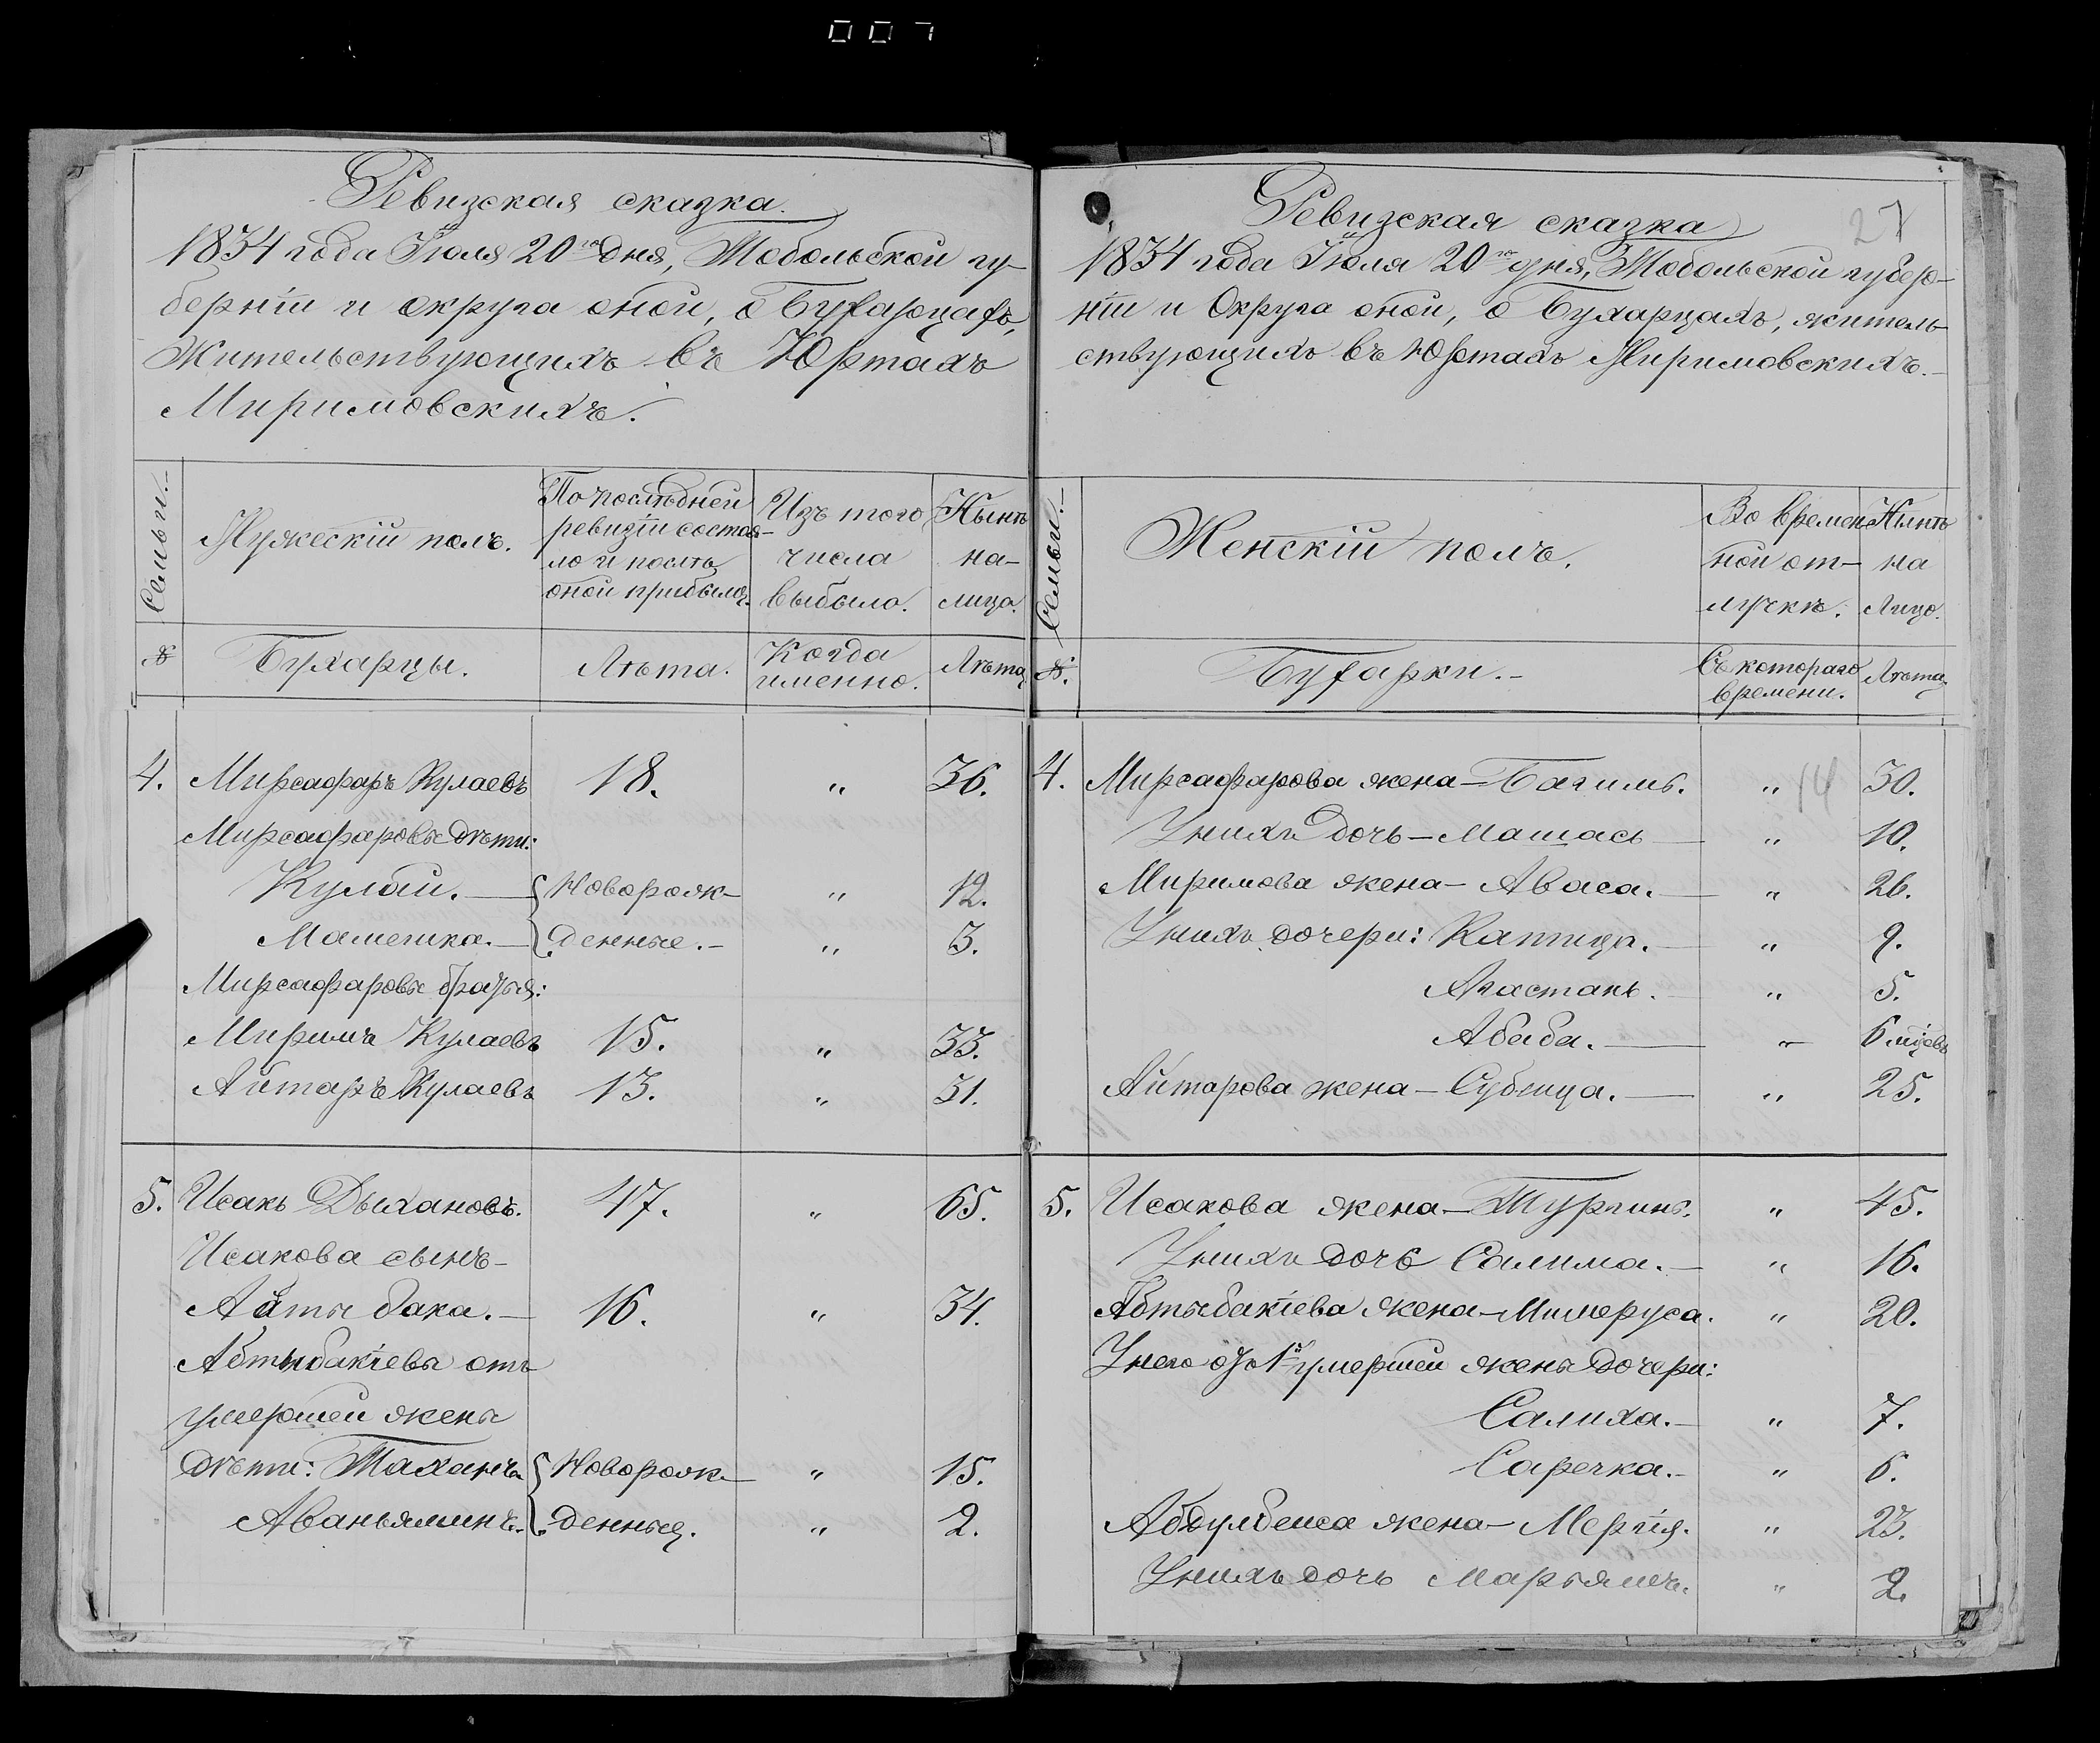 007
Ревизская сказка.
1834 года Іюля 20го дня, Тобольской гу-
берніи и округа оной, о Бухарцахъ,
Жительствующихъ въ Юртахъ
Миримовскихъ.
Семьи.
Мужескій полъ.
По послѣдней
ревизіи состоя-
ло и послѣ
оной прибыло.
Изъ того
числа
выбыло.
Нынѣ
на-
лицо.
№
Бухарцы.
Лѣта.
Когда
именно.
Лѣта
4. Мирсафаръ Кулаевъ 18. „ 36.
Мирсафаровы дѣти:
Кулбай. — Новорож- „ 12.
Мамешка. — денные. - „ 3.
Мирсафаровы братья:
Миримъ Кулаевъ 15. „ 33.
Айтаръ Кулаевъ 13. „ 31.
5. Исакъ Дыхановъ. 47. „ 65.
Исакова сынъ-
Айтыбака. — 16. „ 34.
Абтыбакіевы отъ
умершей жены
дѣти: Таханъ Новорож- „ 15.
Аваньяминъ. денныя. „ 2.
27
Ревизская сказка
1834 года Іюля 20го дня, Тобольской губер-
ніи и Округа оной, о Бухарцахъ, житель-
ствующихъ въ Юртахъ Миримовскихъ.
Семьи.
Женскій полъ.
Во времен-
ной от-
лучкѣ.
Нынѣ
на
Лицо.
№.
Бухарки.-
Съ котораго
времени.
Лѣта
4. Мирсафарова жена - Багиль. „ 14 30.
У нихъ дочь - Машась „ 10.
Миримова жена - Аваса. „ 26.
У нихъ дочери: Капица. „ 9.
Агастань. „ 5.
Абаба. „ 6 мѣцевъ
Айтарова жена - Субгица. „ 25.
5. Исакова жена - Тургинь. „ 45.
У нихъ дочь Салима. „ 16.
Абтыбакіева жена - Мимеруса. „ 20.
У него отъ 1й умершей жены дочери:
Салиха. „ 7.
Саречка. „ 6.
Абдулбеиса жена - Мергія. „ 23.
У нихъ дочь Марьямъ. „ 2.